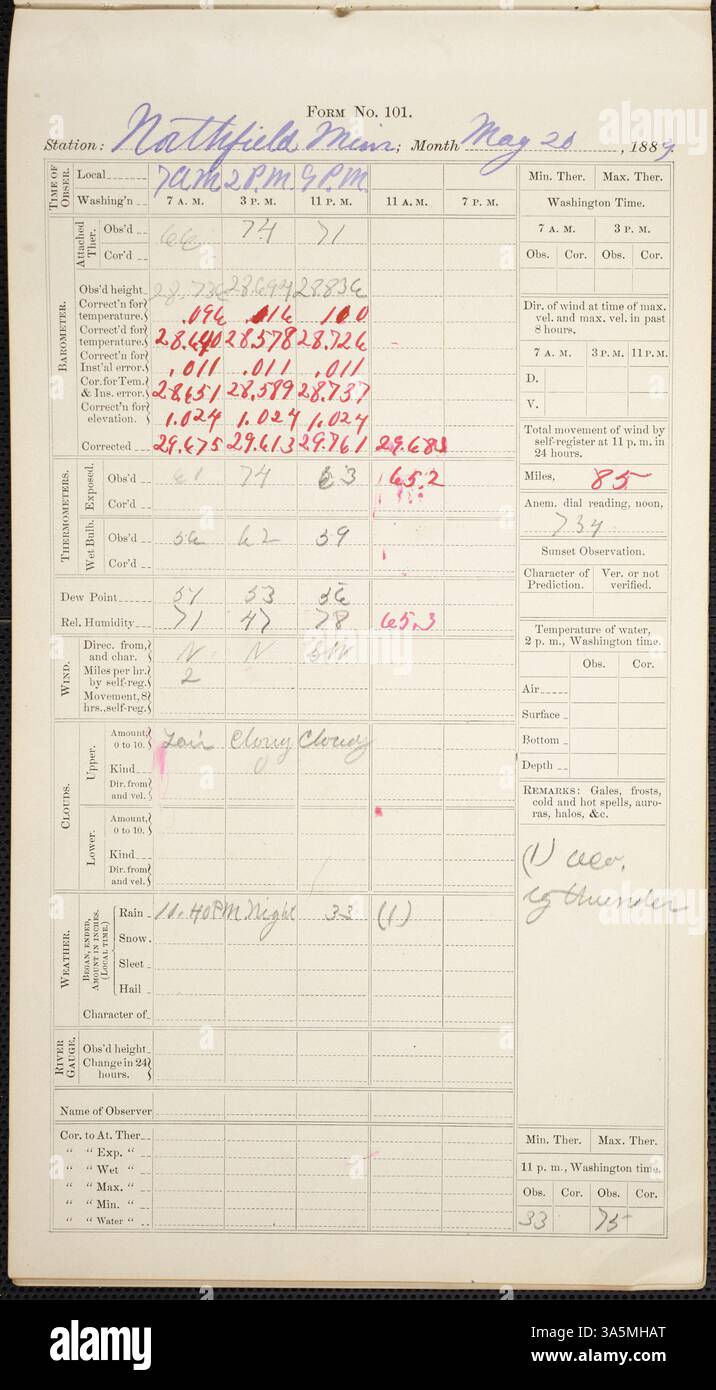 FORM NO. 101.
Station: Northfield Minn; Month May 20, 1889
TIME OF OBSER.
Local 7 A M 2 P.M. 9 P.M.
Washing'n 7 A. M. 3 P. M. 11 P. M. 11 A. M. 7 P. M.
Attached Ther.
Obs'd 66 74 71
Cor'd
BAROMETER.
Obs'd height 28.736 28.694 28.836
Correct'n for temperature. .096 .116 .110
Correct'd for temperature. 28.640 28.578 28.726
Correct'n for Inst'al error. .011 .011 .011
Cor. for Tem. & Ins. error. 28.651 28.589 28.737
Correct'n for elevation. 1.024 1.024 1.024
Corrected 29.675 29.613 29.761 29.683
THERMOMETERS.
Exposed.
Obs'd 61 74 63 65.2
Cor'd
Wet Bulb.
Obs'd 56 62 59
Cor'd
Dew Point 51 53 56
Rel. Humidity 71 47 78 65.3
WIND.
Direc. from, and char. N N SW
Miles per hr. by self-reg. 2
Movement, 8 hrs., self-reg.
CLOUDS.
Upper.
Amount, 0 to 10. Fair Cloudy Cloudy
Kind
Dir. from and vel.
Lower.
Amount, 0 to 10.
Kind
Dir. from and vel.
WEATHER.
BEGAN, ENDED, AMOUNT IN INCHES. (LOCAL TIME.)
Rain 11.40 P.M. Night 33 (1)
Snow.
Sleet
Hail
Character of
RIVER GAUGE.
Obs'd height
Change in 24 hours.
Name of Observer
Cor. to At. Ther
" " Exp. "
" " Wet "
" " Max. "
" " Min. "
" " Water "
Min. Ther. Max. Ther.
Washington Time.
7 A. M. 3 P. M.
Obs. Cor. Obs. Cor.
Dir. of wind at time of max. vel. and max. vel. in past 8 hours.
7 A. M. 3 P. M. 11 P. M.
D.
V.
Total movement of wind by self-register at 11 p. m. in 24 hours.
Miles, 85
Anem. dial reading, noon,
734
Sunset Observation.
Character of Prediction. Ver. or not verified.
Temperature of water, 2 p. m., Washington time.
Obs. Cor.
Air
Surface
Bottom
Depth
REMARKS: Gales, frosts, cold and hot spells, auroras, halos, &c.
(1)
thunder
Min. Ther. Max. Ther.
11 p. m., Washington time.
Obs. Cor. Obs. Cor.
33 75
alamy
alamy
Image ID: 3A5MHAT
www.alamy.com